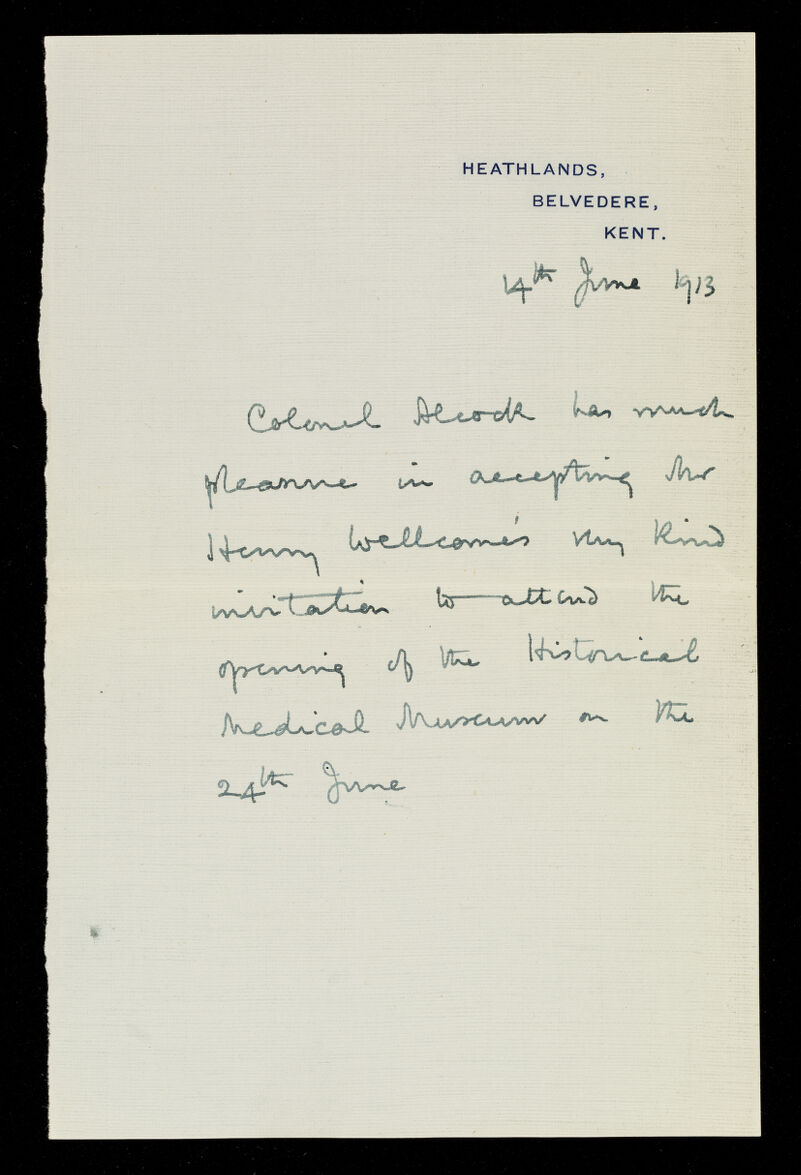 HEATHLANDS,
BELVEDERE,
KENT.
14th June 1913
Colonel Alcock has much
pleasure in accepting Mr
Henry Wellcome's very kind
invitation to attend the
opening of the Historical
Medical Museum on the
24th June